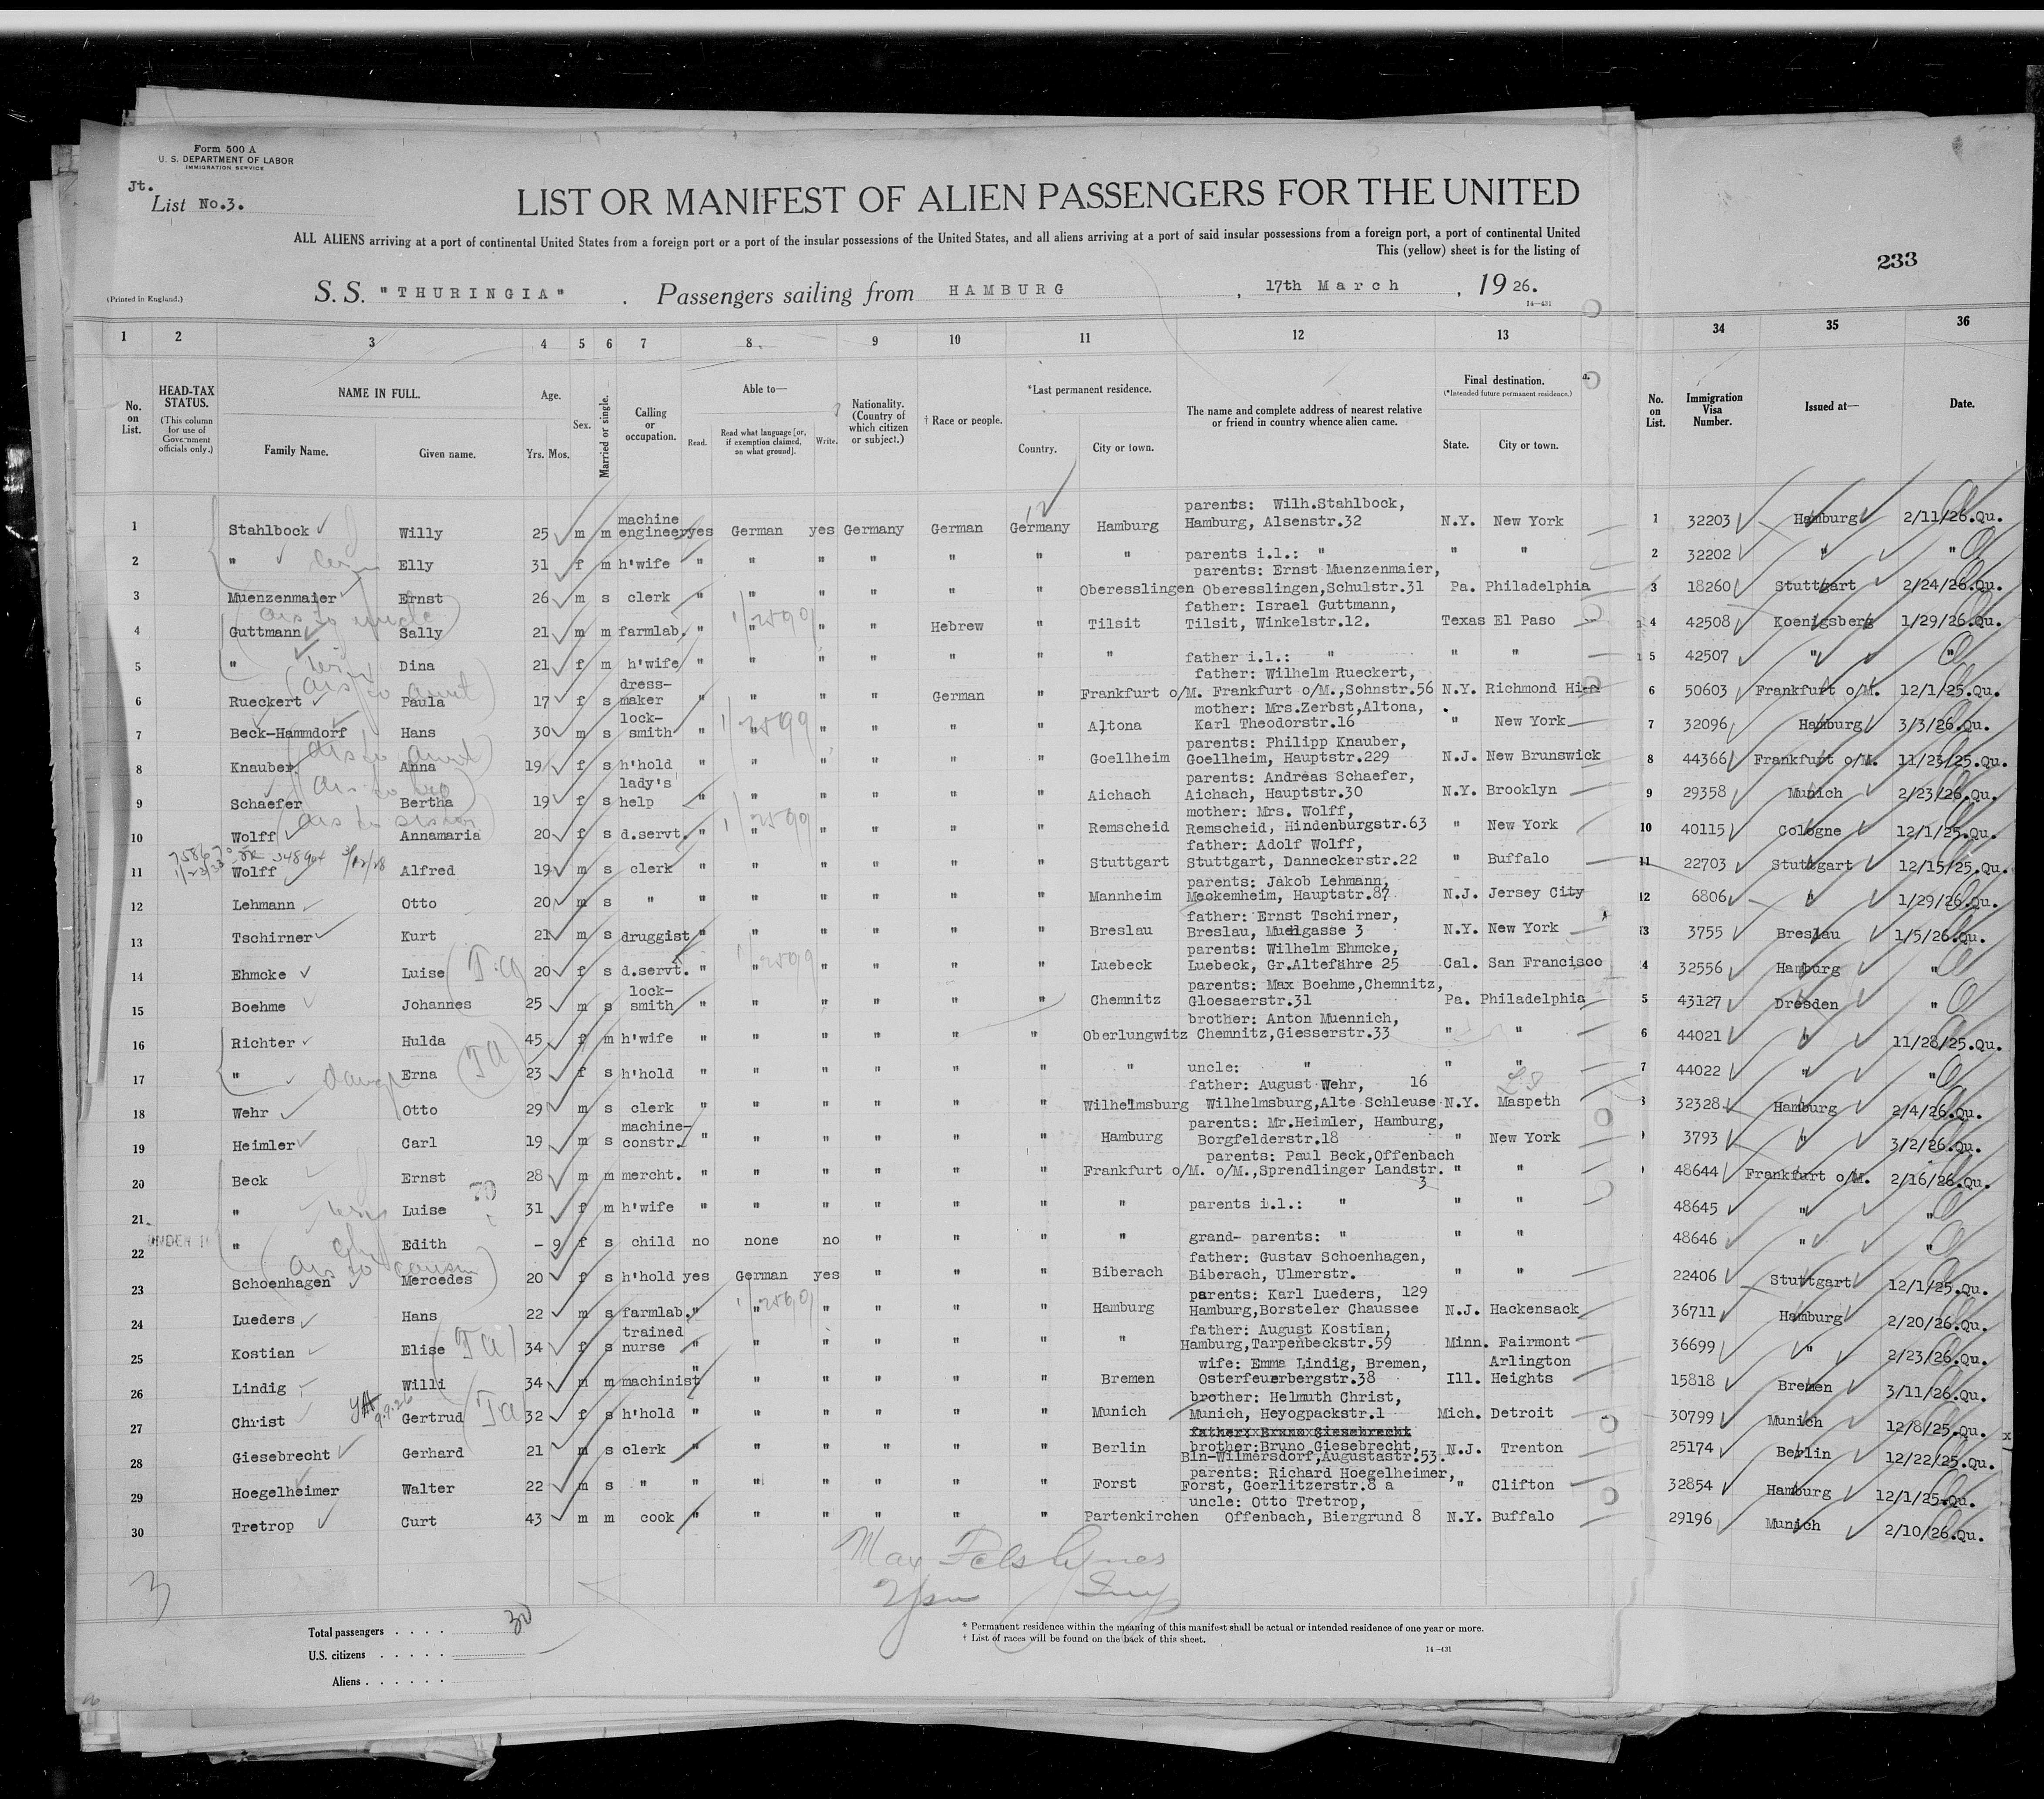 Form 500 A
U. S. DEPARTMENT OF LABOR
IMMIGRATION SERVICE
Jt.
List No.3.
LIST OR MANIFEST OF ALIEN PASSENGERS FOR THE UNITED
ALL ALIENS arriving at a port of continental United States from a foreign port or a port of the insular possessions of the United States, and all aliens arriving at a port of said insular possessions from a foreign port, a port of continental United
This (yellow) sheet is for the listing of
233
(Printed in England.)
S. S. "THURINGIA" . Passengers sailing from HAMBURG , 17th March , 19 26.
14—431
1 2 3 4 5 6 7 8 9 10 11 12 13 34 35 36
No. on List.
HEAD-TAX STATUS.
(This column for use of Government officials only.)
NAME IN FULL.
Family Name. Given name.
Age.
Yrs. Mos.
Sex.
Married or single.
Calling or occupation.
Able to—
Read. Read what language [or, if exemption claimed, on what ground]. Write.
Nationality. (Country of which citizen or subject.)
† Race or people.
*Last permanent residence.
Country. City or town.
The name and complete address of nearest relative or friend in country whence alien came.
Final destination.
(*Intended future permanent residence.)
State. City or town.
No. on List.
Immigration Visa Number.
Issued at—
Date.
parents: Wilh.Stahlbock,
1 Stahlbock Willy 25 m m machine engineer yes German yes Germany German Germany Hamburg Hamburg, Alsenstr.32 N.Y. New York 1 32203 Hamburg 2/11/26.Qu.
2 " Elly 31 f m h'wife " " " " " " " parents i.l.: " " " 2 32202 " "
parents: Ernst Muenzenmaier,
3 Muenzenmaier Ernst 26 m s clerk " " " " " " Oberesslingen Oberesslingen,Schulstr.31 Pa. Philadelphia 3 18260 Stuttgart 2/24/26.Qu.
ars to uncle
father: Israel Guttmann,
4 Guttmann Sally 21 m m farmlab. " " " " Hebrew " Tilsit Tilsit, Winkelstr.12. Texas El Paso 4 42508 Koenigsberg 1/29/26.Qu.
5 " Dina 21 f m h'wife " " " " " " " father i.l.: " " " 5 42507 " "
father: Wilhelm Rueckert,
6 Rueckert Paula 17 f s dress-maker " " " " German " Frankfurt o/M. Frankfurt o/M.,Sohnstr.56 N.Y. Richmond Hill 6 50603 Frankfurt o/M. 12/1/25.Qu.
mother: Mrs.Zerbst,Altona,
7 Beck-Hammdorf Hans 30 m s lock-smith " " " " " " Altona Karl Theodorstr.16 " New York 7 32096 Hamburg 3/3/26.Qu.
parents: Philipp Knauber,
8 Knauber Anna 19 f s h'hold " " " " " " Goellheim Goellheim, Hauptstr.229 N.J. New Brunswick 8 44366 Frankfurt o/M. 11/23/25.Qu.
parents: Andreas Schaefer,
9 Schaefer Bertha 19 f s lady's help " " " " " " Aichach Aichach, Hauptstr.30 N.Y. Brooklyn 9 29358 Munich 2/23/26.Qu.
ars to sister
mother: Mrs. Wolff,
10 Wolff Annamaria 20 f s d.servt. " " " " " " Remscheid Remscheid, Hindenburgstr.63 " New York 10 40115 Cologne 12/1/25.Qu.
father: Adolf Wolff,
11 Wolff Alfred 19 m s clerk " " " " " " Stuttgart Stuttgart, Danneckerstr.22 " Buffalo 11 22703 Stuttgart 12/15/25.Qu.
parents: Jakob Lehmann,
12 Lehmann Otto 20 m s " " " " " " " Mannheim Meckemheim, Hauptstr.87 N.J. Jersey City 12 6806 " 1/29/26.Qu.
father: Ernst Tschirner,
13 Tschirner Kurt 21 m s druggist " " " " " " Breslau Breslau, gasse 3 N.Y. New York 13 3755 Breslau 1/5/26.Qu.
parents: Wilhelm Ehmcke,
14 Ehmcke Luise 20 f s d.servt. " " " " " " Luebeck Luebeck, Gr.Altefähre 25 Cal. San Francisco 4 32556 Hamburg "
parents: Max Boehme,Chemnitz,
15 Boehme Johannes 25 m s lock-smith " " " " " " Chemnitz Gloesaerstr.31 Pa. Philadelphia 5 43127 Dresden "
brother: Anton Muennich,
16 Richter Hulda 45 f m h'wife " " " " " " Oberlungwitz Chemnitz,Giesserstr.33 " " 6 44021 " 11/28/25.Qu.
17 " Erna 23 f s h'hold " " " " " " " uncle: " " " 7 44022 " "
father: August Wehr, 16
18 Wehr Otto 29 m s clerk " " " " " " Wilhelmsburg Wilhelmsburg,Alte Schleuse N.Y. Maspeth 32328 Hamburg 2/4/26.Qu.
parents: Mr.Heimler, Hamburg,
19 Heimler Carl 19 m s machine-constr. " " " " " " Hamburg Borgfelderstr.18 " New York 3793 " 3/2/26.Qu.
parents: Paul Beck,Offenbach
20 Beck Ernst 28 m m mercht. " " " " " " Frankfurt o/M. o/M.,Sprendlinger Landstr. 3 " " 48644 Frankfurt o/M. 2/16/26.Qu.
21 " Luise 31 f m h'wife " " " " " " " parents i.l.: " " " 48645 " "
UNDER
22 " Edith - 9 f s child no none no " " " " grand- parents: " " " 48646 " "
ars to cousin
father: Gustav Schoenhagen,
23 Schoenhagen Mercedes 20 f s h'hold yes German yes " " " Biberach Biberach, Ulmerstr. " " 22406 Stuttgart 12/1/25.Qu.
parents: Karl Lueders, 129
24 Lueders Hans 22 m s farmlab. " " " " " " Hamburg Hamburg,Borsteler Chaussee N.J. Hackensack 36711 Hamburg 2/20/26.Qu.
father: August Kostian,
25 Kostian Elise 34 f s trained nurse " " " " " " " Hamburg,Tarpenbeckstr.59 Minn. Fairmont 36699 " 2/23/26.Qu.
wife: Emma Lindig, Bremen,
26 Lindig Willi 34 m m machinist " " " " " " Bremen Osterfeuerbergstr.38 Ill. Arlington Heights 15818 Bremen 3/11/26.Qu.
brother: Helmuth Christ,
27 Christ Gertrud 32 f s h'hold " " " " " " Munich Munich, Heyogpackstr.1 Mich. Detroit 30799 Munich 12/8/25.Qu.
brother:Bruno Giesebrecht,
28 Giesebrecht Gerhard 21 m s clerk " " " " " " Berlin Bln-Wilmersdorf,Augustastr.53. N.J. Trenton 25174 Berlin 12/22/25.Qu.
parents: Richard Hoegelheimer,
29 Hoegelheimer Walter 22 m s " " " " " " " Forst Forst, Goerlitzerstr.8 a " Clifton 32854 Hamburg 12/1/25.Qu.
uncle: Otto Tretrop,
30 Tretrop Curt 43 m m cook " " " " " " Partenkirchen Offenbach, Biergrund 8 N.Y. Buffalo 29196 Munich 2/10/26.Qu.
3
Total passengers . . . . 30
U.S. citizens . . . . .
Aliens . . . . . .
* Permanent residence within the meaning of this manifest shall be actual or intended residence of one year or more.
† List of races will be found on the back of this sheet.
14—431